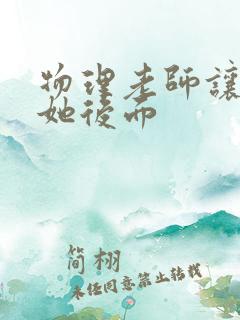 物理老師讓
她後面
简栩
未经同意禁止转载